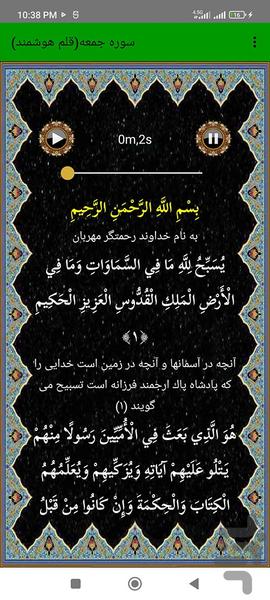 10:38 PM
4.5G
16
سوره جمعه(قلم هوشمند)
0m,2s
بِسْمِ اللَّهِ الرَّحْمَنِ الرَّحِيمِ
به نام خداوند رحمتگر مهربان
يُسَبِّحُ لِلَّهِ مَا فِي السَّمَاوَاتِ وَمَا فِي
الْأَرْضِ الْمَلِكِ الْقُدُّوسِ الْعَزِيزِ الْحَكِيمِ
﴿١﴾
آنچه در آسمانها و آنچه در زمين است خدايى را
كه پادشاه پاك ارجمند فرزانه است تسبيح مى
گويند (۱)
هُوَ الَّذِي بَعَثَ فِي الْأُمِّيِّينَ رَسُولًا مِنْهُمْ
يَتْلُو عَلَيْهِمْ آيَاتِهِ وَيُزَكِّيهِمْ وَيُعَلِّمُهُمُ
الْكِتَابَ وَالْحِكْمَةَ وَإِنْ كَانُوا مِنْ قَبْلُ